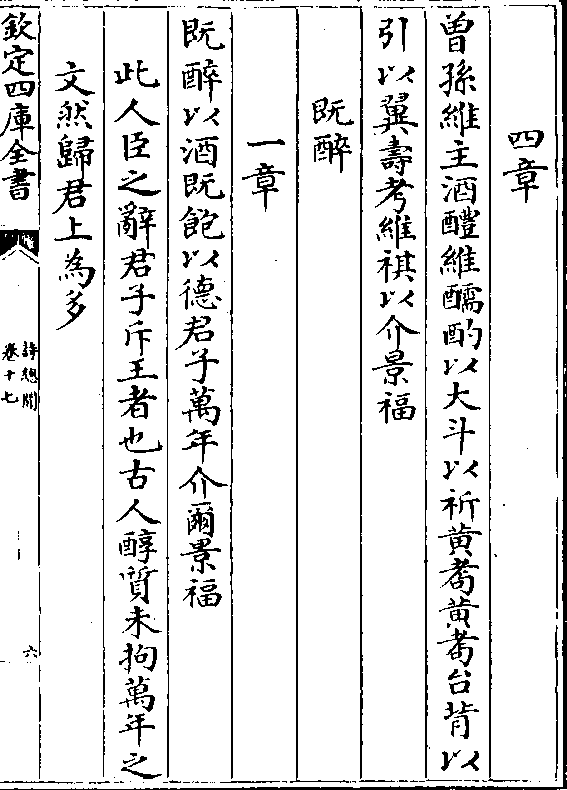 四章
曽孫維主酒醴維醹酌以大斗以祈黄耉黄耉台背以
引以翼壽考維祺以介景福
既醉
一章
既醉以酒既飽以德君子萬年介爾景福
此人臣之辭君子斥王者也古人醇質未拘萬年之
文然歸君上為多
欽定四庫全書
詩總聞
卷十七
六